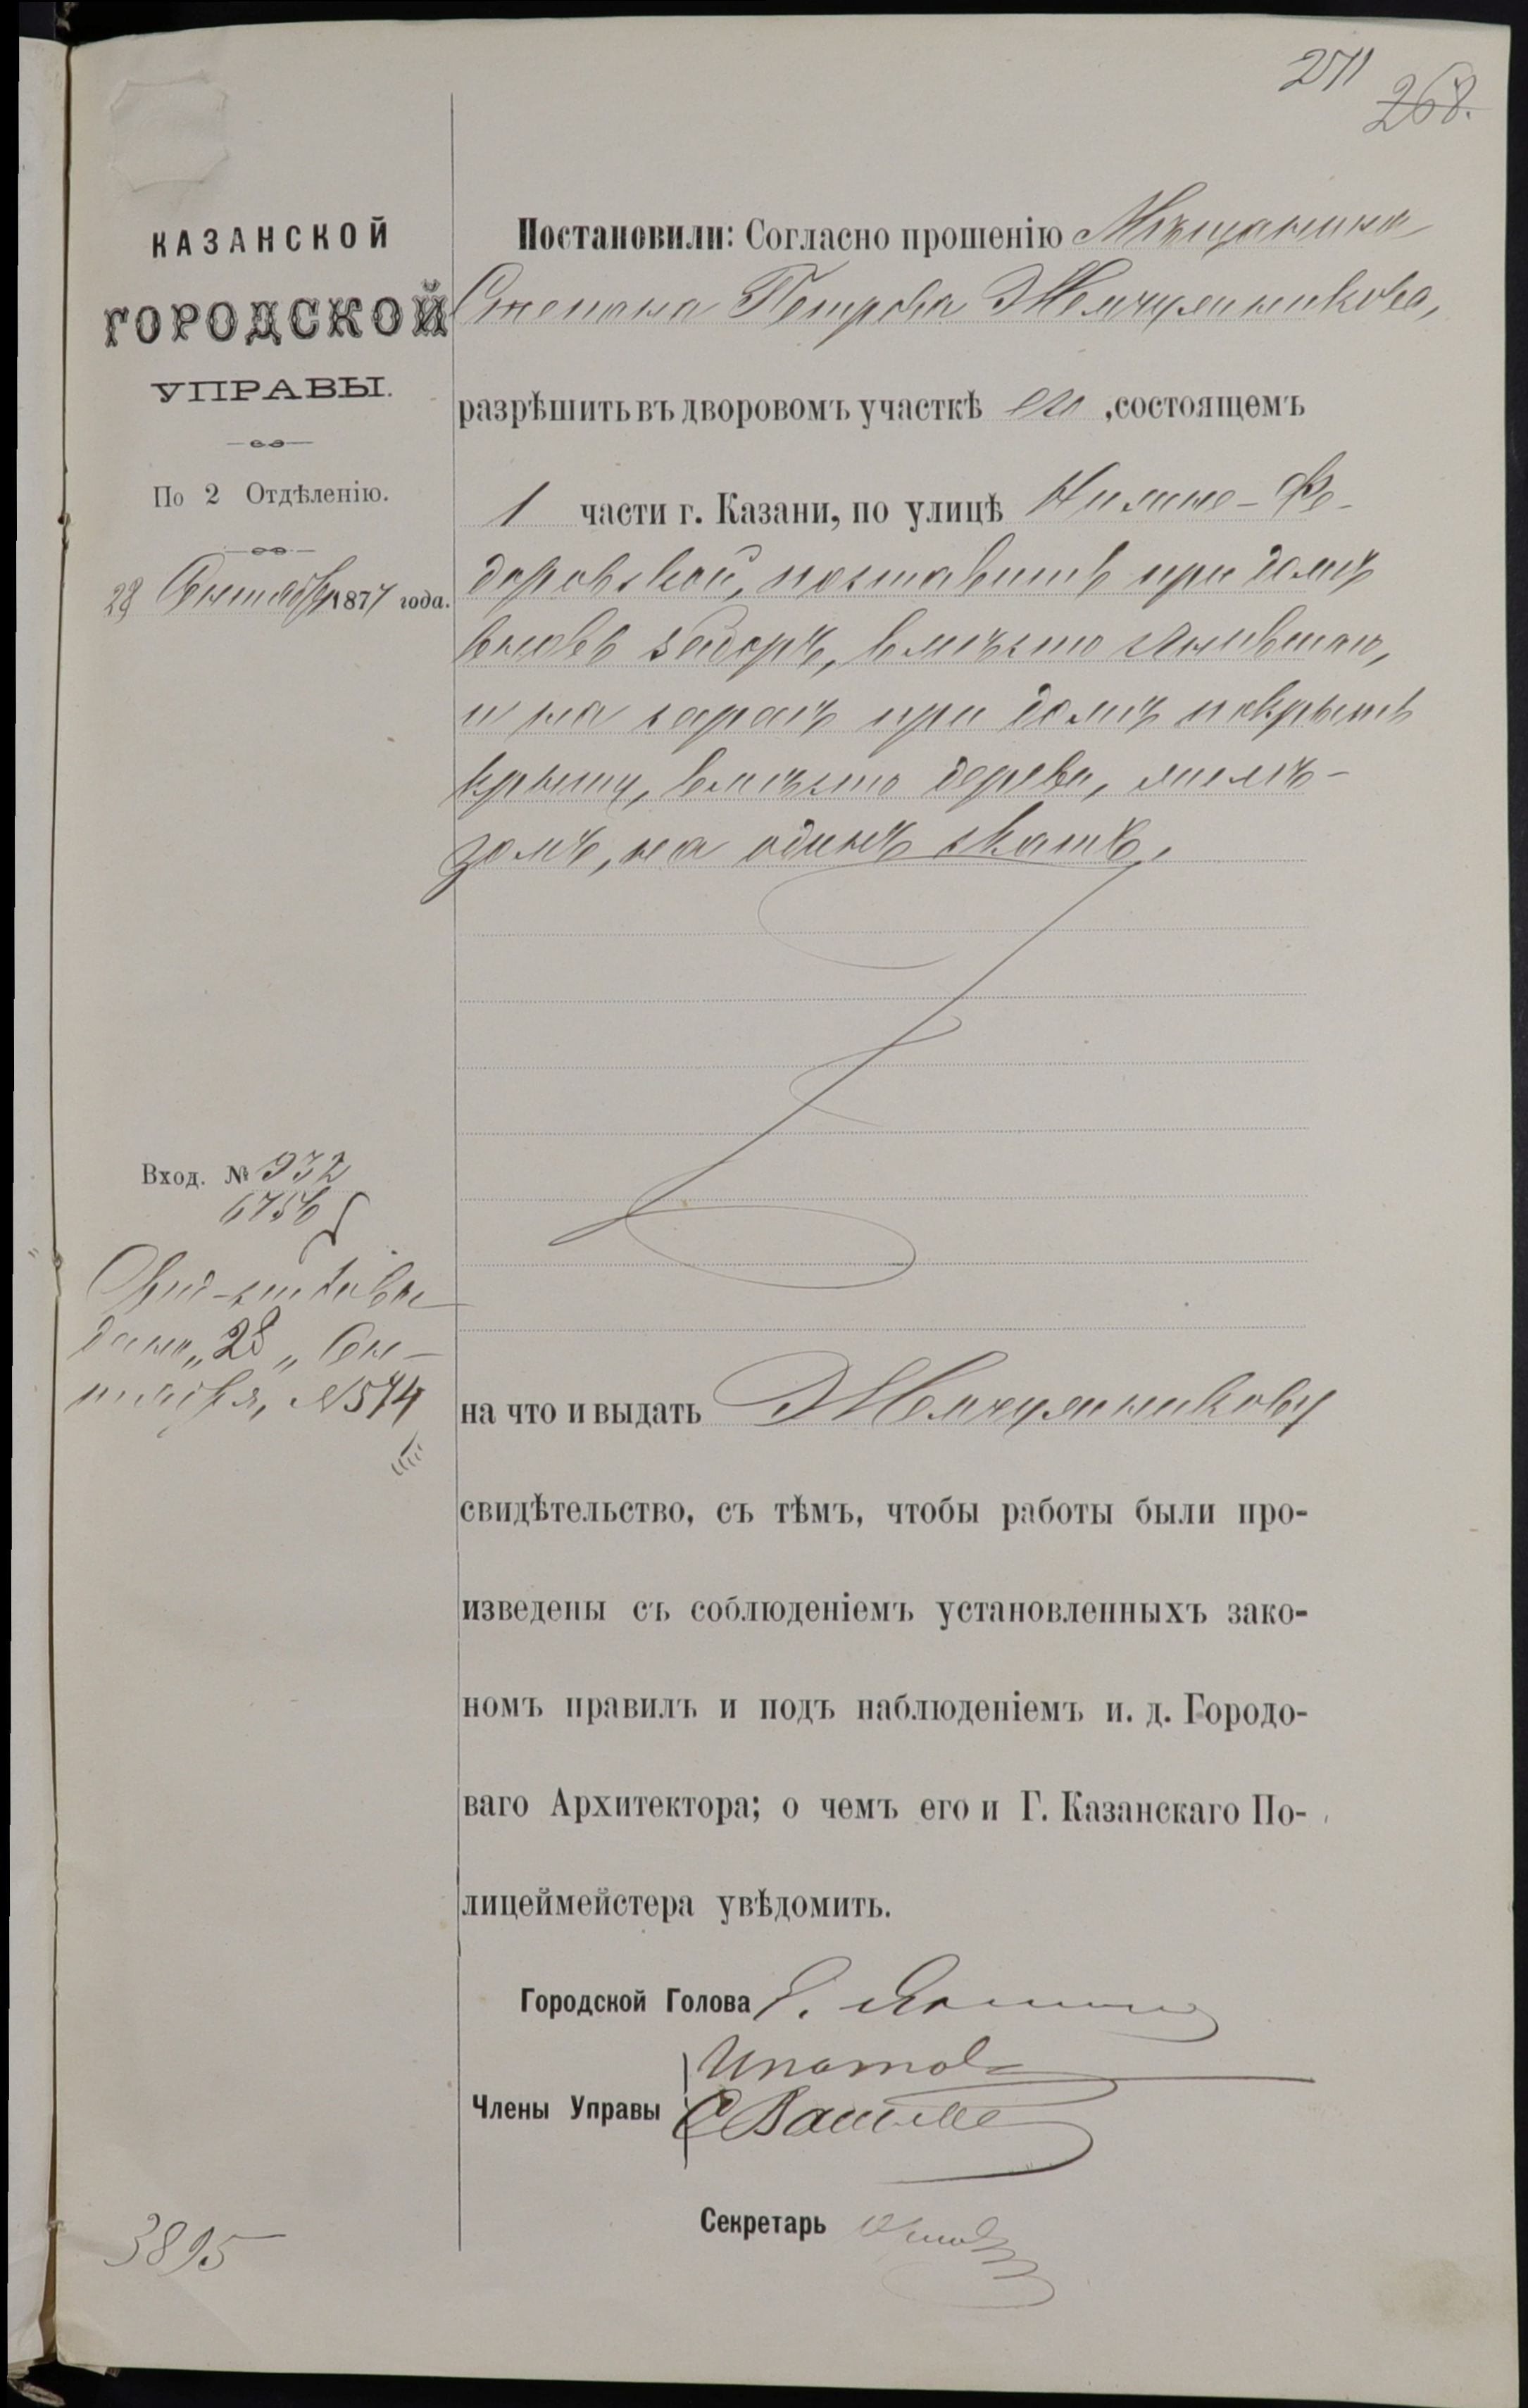 271
268.
КАЗАНСКОЙ
ГОРОДСКОЙ
УПРАВЫ.
По 2 Отдѣленію.
28 Сентября 1877 года.
Постановили: Согласно прошенію Мѣщанина
Степана Петрова Жемчужникова,
разрѣшить въ дворовомъ участкѣ его, состоящемъ
1 части г. Казани, по улицѣ Нижне-Фе-
доровской, поставить при домѣ
вновь заборъ, вмѣсто сгнившаго,
и на сараѣ при домѣ покрыть
крышу, вмѣсто дерева, желѣ-
зомъ, на одинъ скатъ.
Вход. № 932
6756
Свид-ство вы
дано „28„ Сен-
тября, №544
на что и выдать Жемчужникову
свидѣтельство, съ тѣмъ, чтобы работы были про-
изведены съ соблюденіемъ установленныхъ зако-
номъ правилъ и подъ наблюденіемъ и. д. Городо-
ваго Архитектора; о чемъ его и Г. Казанскаго По-
лицеймейстера увѣдомить.
Городской Голова
Члены Управы Ипатов
Секретарь
3895